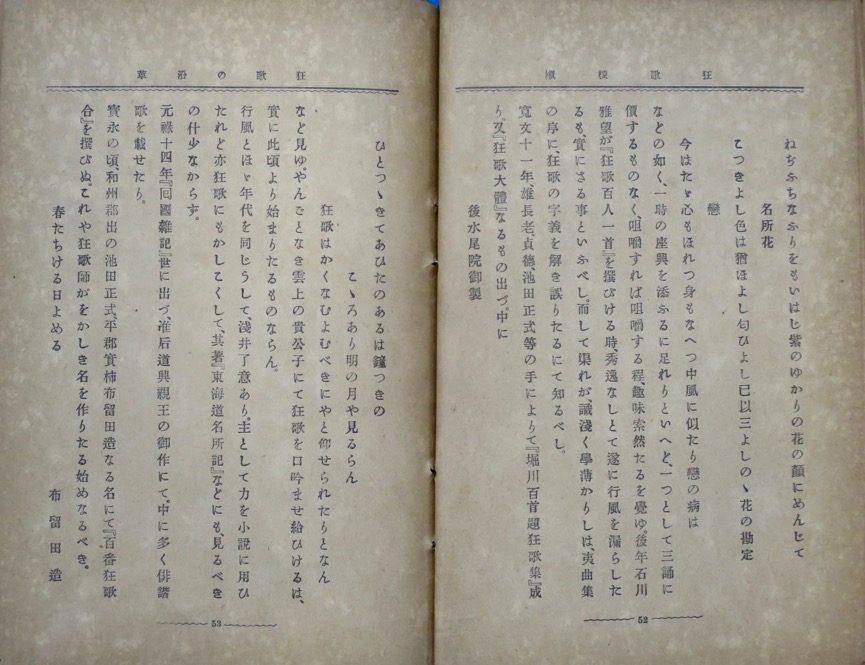 狂歌梗概
ねぢふぢなふりをもいはじ紫のゆかりの花の顔にめんじて
名所花
こつきよし色は猶ほよし匂ひよし已以三よしのゝ花の勘定
戀
今はたゞ心もほれつ身もなへつ中風に似たり戀の病は
などの如く、一時の座興を添ふるに足れりといへど、一つとして三誦に
價するものなく、咀嚼すれば咀嚼する程、趣味索然たるを覺ゆ。後年石川
雅望が『狂歌百人一首』を撰びける時、秀逸なしとて遂に行風を漏らした
るも、實にさる事といふべし。而して渠れが、識淺く學薄かりしは、夷曲集
の序に、狂歌の字義を解き誤りたるにて知るべし。
寛文十一年、雄長老、貞德、池田正式等の手によりて『堀川百首題狂歌集』成
り、又『狂歌大體』なるもの出づ。中に
後水尾院御製
52
狂歌の沿革
ひとつゝきてあひたのあるは鐘つきの
こゝろあり明の月や見るらん
狂歌はかくなむよむべきにやと仰せられたりとなん
など見ゆ。やんごとなき雲上の貴公子にて狂歌を口吟ませ給ひけるは、
實に此頃より始まりたるものならん。
行風とほゞ年代を同じうして、淺井了意あり。主として力を小說に用ひ
たれど亦狂歌にもかしこくして、其著『東海道名所記』などにも、見るべき
の什少なからず。
元祿十四年『囘國雜記』世に出づ、准后道興親王の御作にて。中に多く俳諧
歌を載せたり。
寶永の頃、和州郡出の池田正式、平郡實柿布留田造なる名にて『百番狂歌
合』を撰びぬ。これや狂歌師がをかしき名を作りたる始めなるべき。
春たちける日よめる
布留田造
53